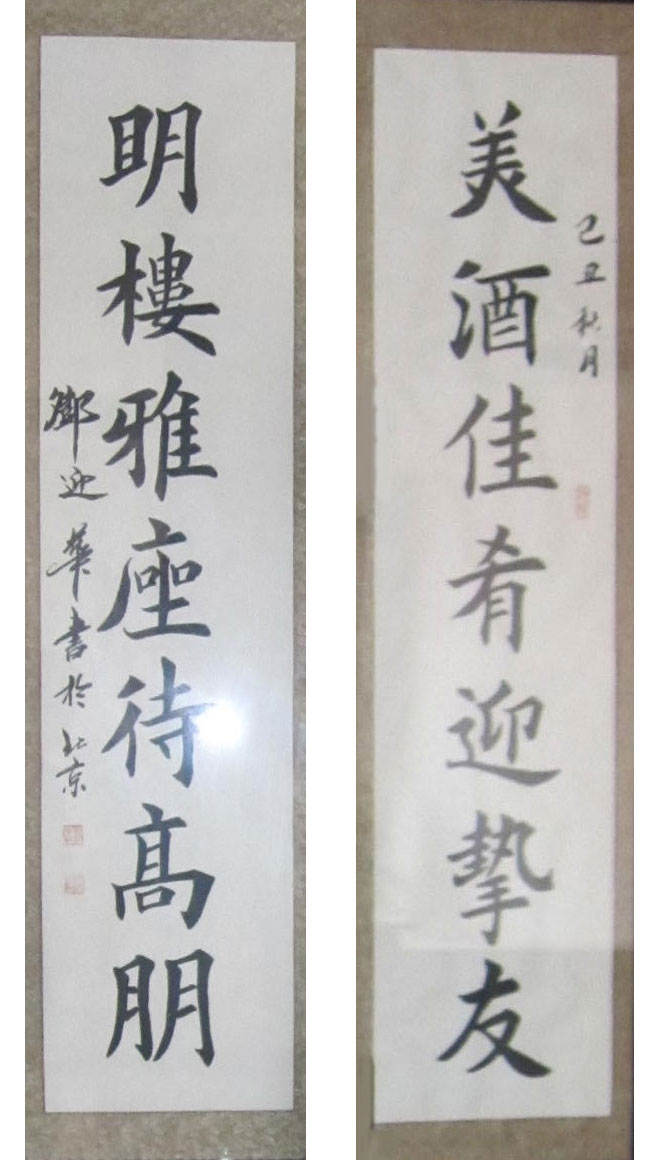 己丑秋月
美酒佳肴迎摯友
明樓雅座待高朋
鄧迎華書於北京